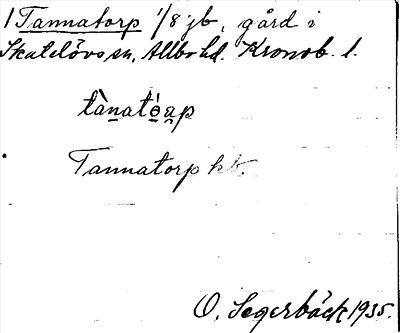 1 Tannatorp 1/8 jb, gård i
Skatelövs sn, Allbo hd. Kronob. l.
tànatòa̤p
Tannatorp hb.
O. Segerbäck 1935.